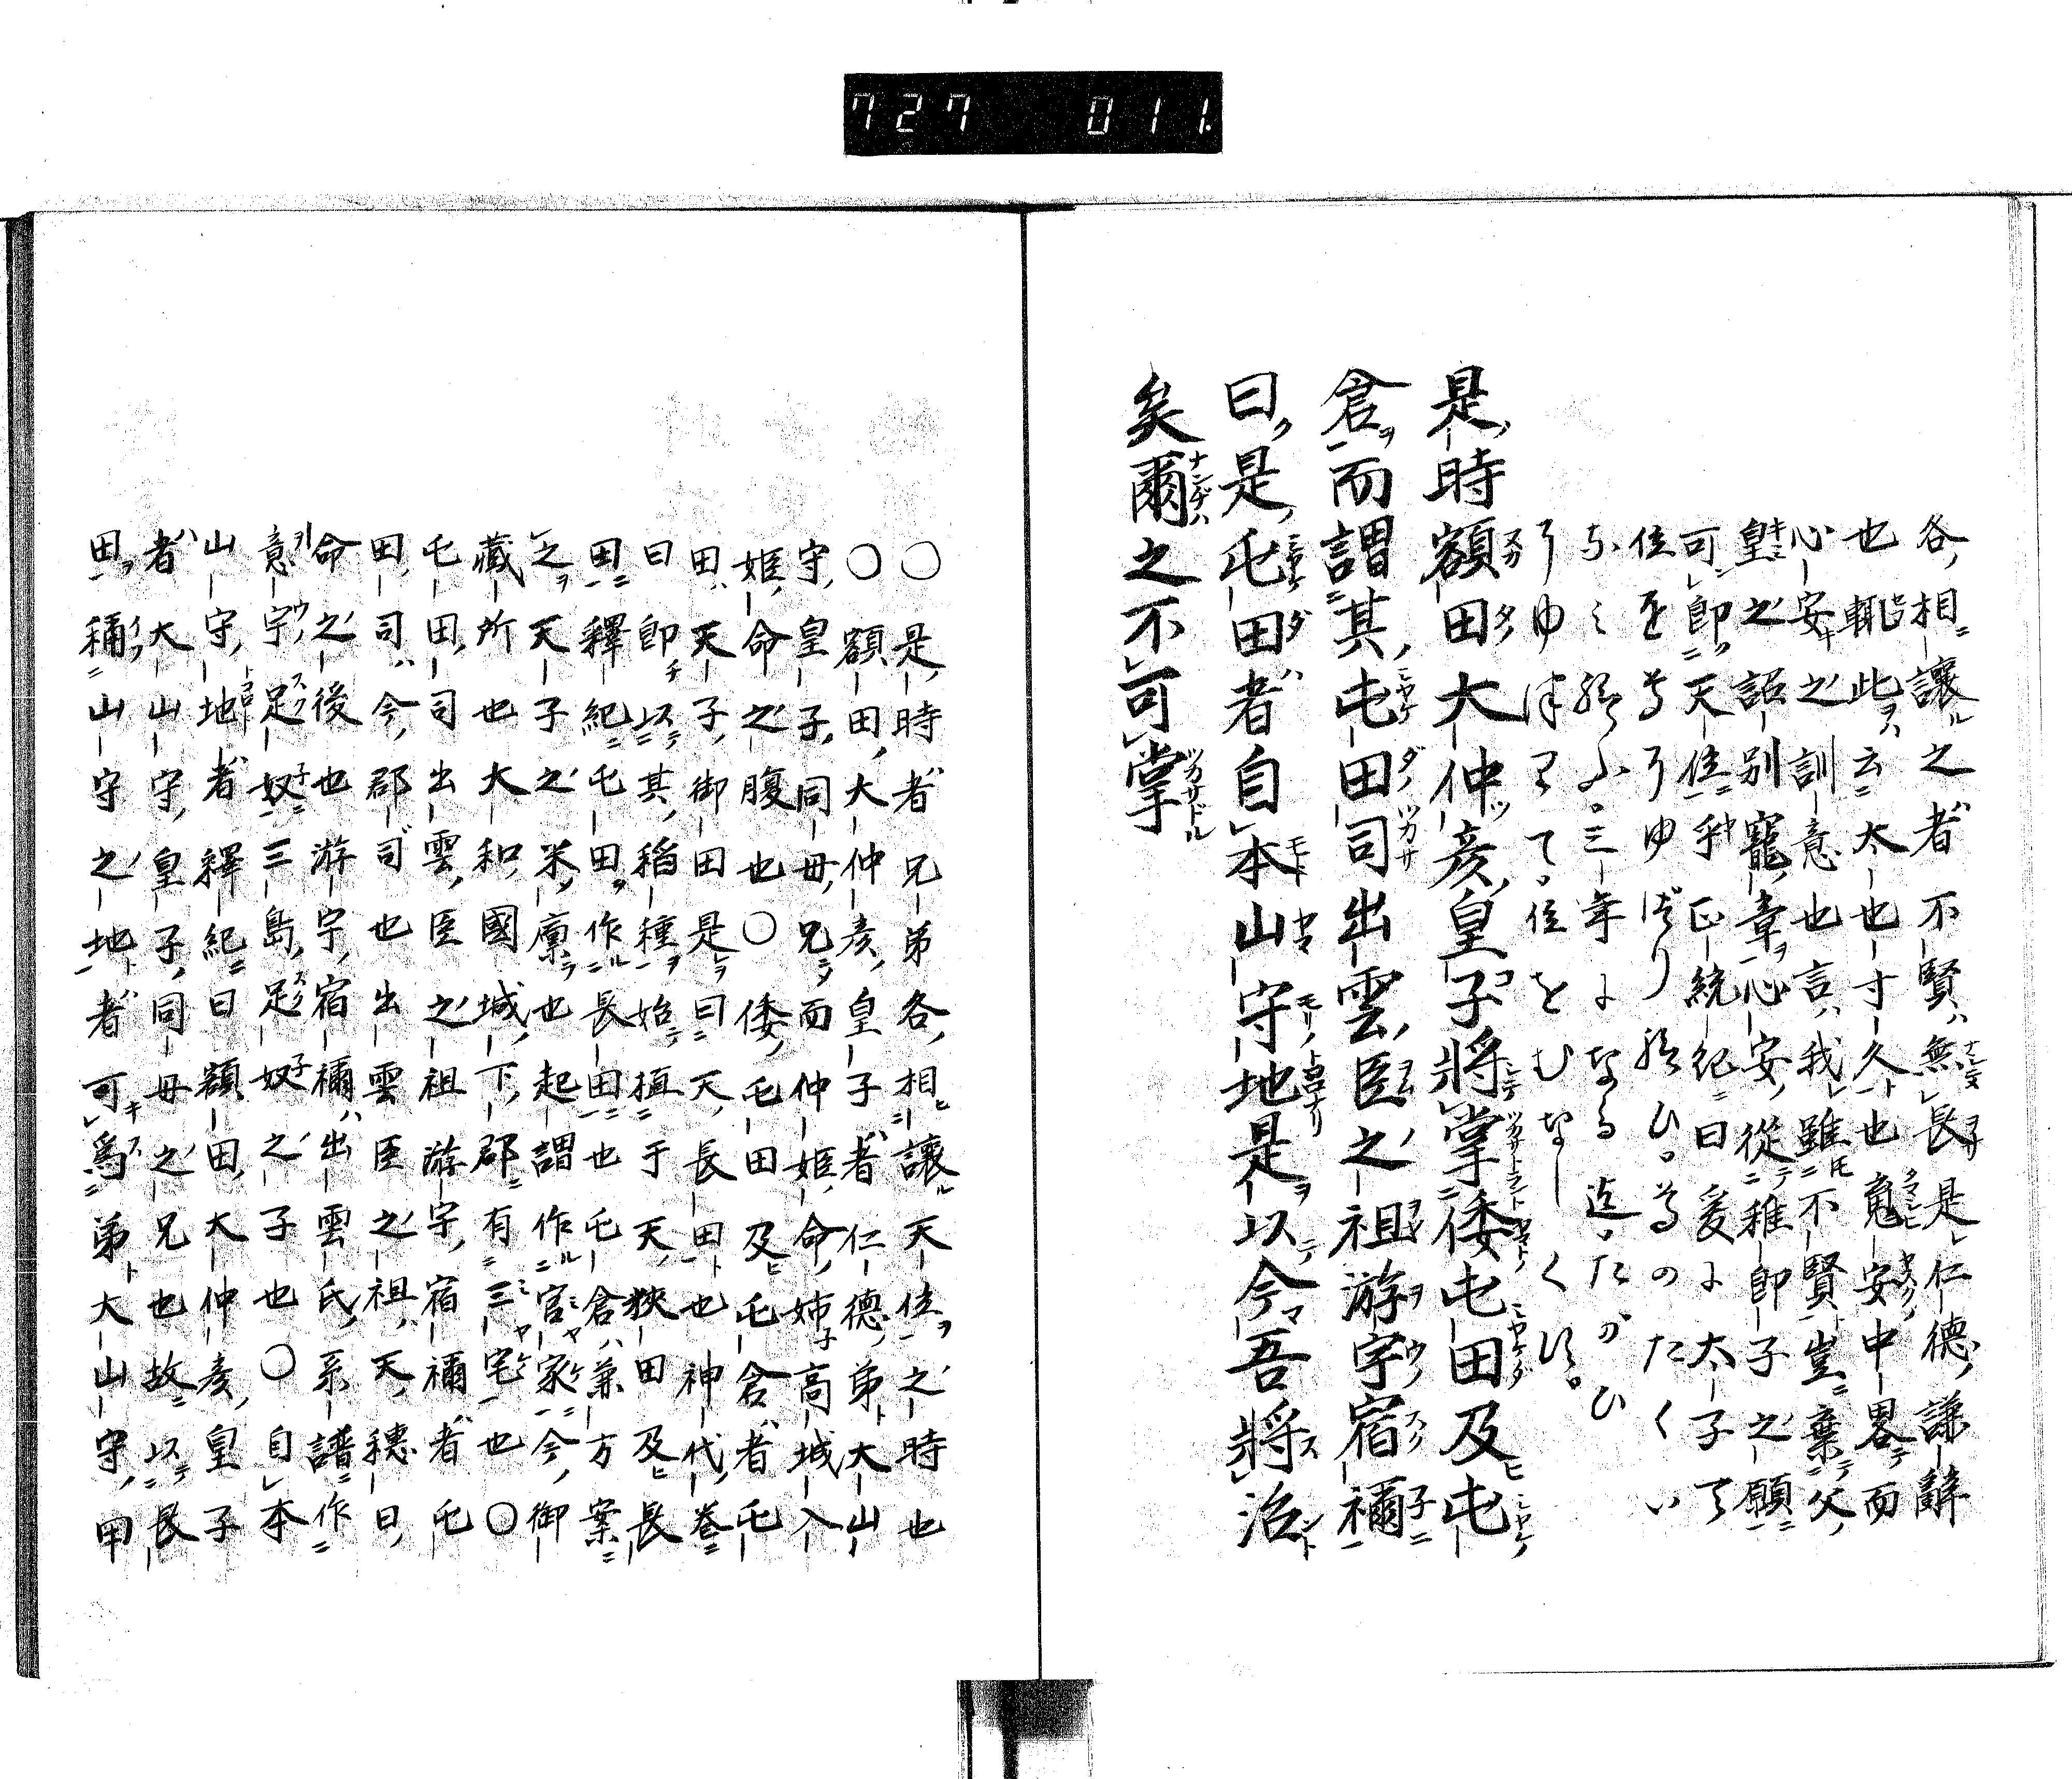 727 011.
各相讓之者不賢無長是仁德謙辭
也輙此云太也寸久也寬安中畧而
心安之訓意也言我雖不賢豈棄父
皇之詔別寵章心安從稚郎子之願
可卽天位乎正統紀曰爰に太子て
位を尊うゆずり給ひ尊のたくい
なみ給ふ三年になる迄たがひ
うゆ津りて位をむなしくす
是時額田大仲彥皇子將掌倭屯田及屯
倉而謂其屯田司出雲臣之祖淤宇宿禰
曰是屯田者自本山守地是以今吾將治
矣爾之不可掌
○是時者兄弟各相讓天位之時也
○額田大仲彥皇子者仁德弟大山
守皇子同母兄而仲姫命姉高城入
姫命之腹也○倭屯田及屯倉者屯
田天子御田是曰天長田也神代卷
曰卽以其稻種始植于天狹田及長
田釋紀屯田作長田也屯倉兼方案
之天子之米廩也起謂作官家今御
藏所也大和國城下郡有三宅也○
屯田司出雲臣之祖淤宇宿禰者屯
田司今郡司也出雲臣之祖天穗日
命之後也游宇宿禰出雲氏系譜作
意宇足奴三島足奴之子也○自本
山守地者釋紀曰額田大仲彥皇子
者大山守皇子同母之兄也故以長
田稱山守之地者可爲弟大山守甲